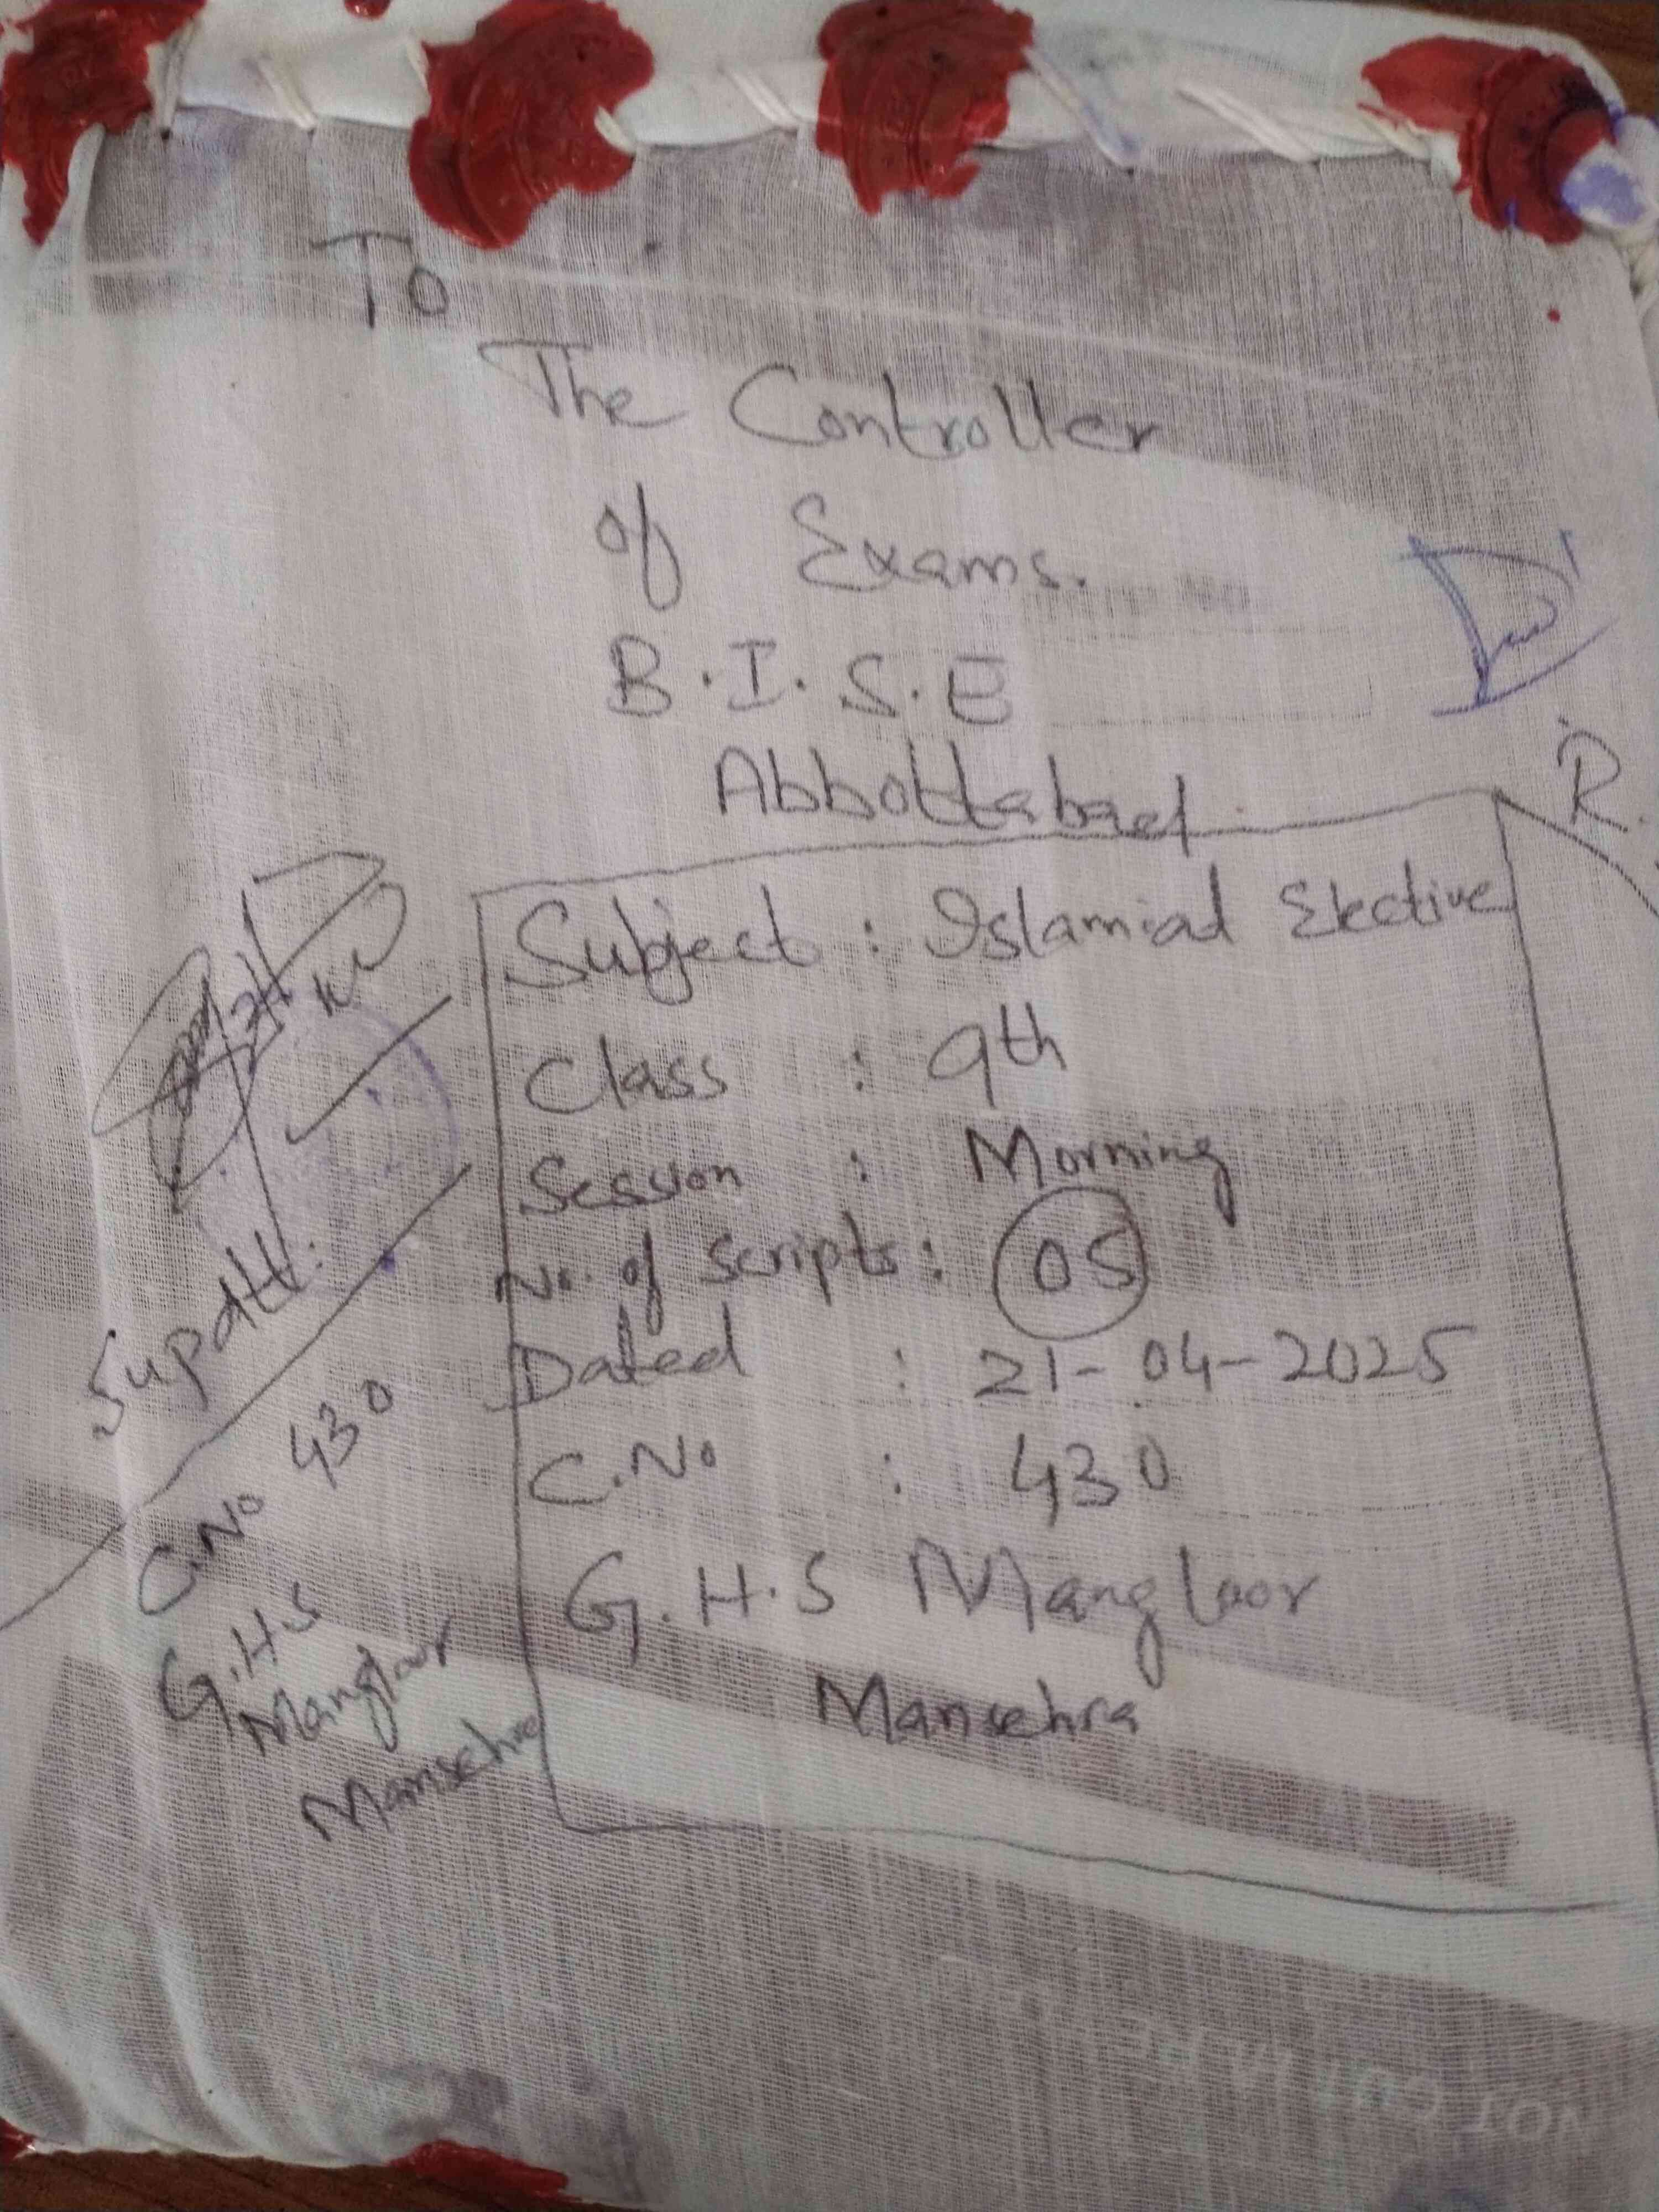 To
The Controller
of Exams.
B.I.S.E
Abbottabad
R.
Subject : Islamiat Elective
Class : 9th
Session : Morning
No. of Scripts : 05
Dated : 21-04-2025
C.No : 430
G.H.S Mangloor
Mansehra
Supdtt:
C.No 430
G.H.S
Mangloor
Mansehra
NOT CUT HERE